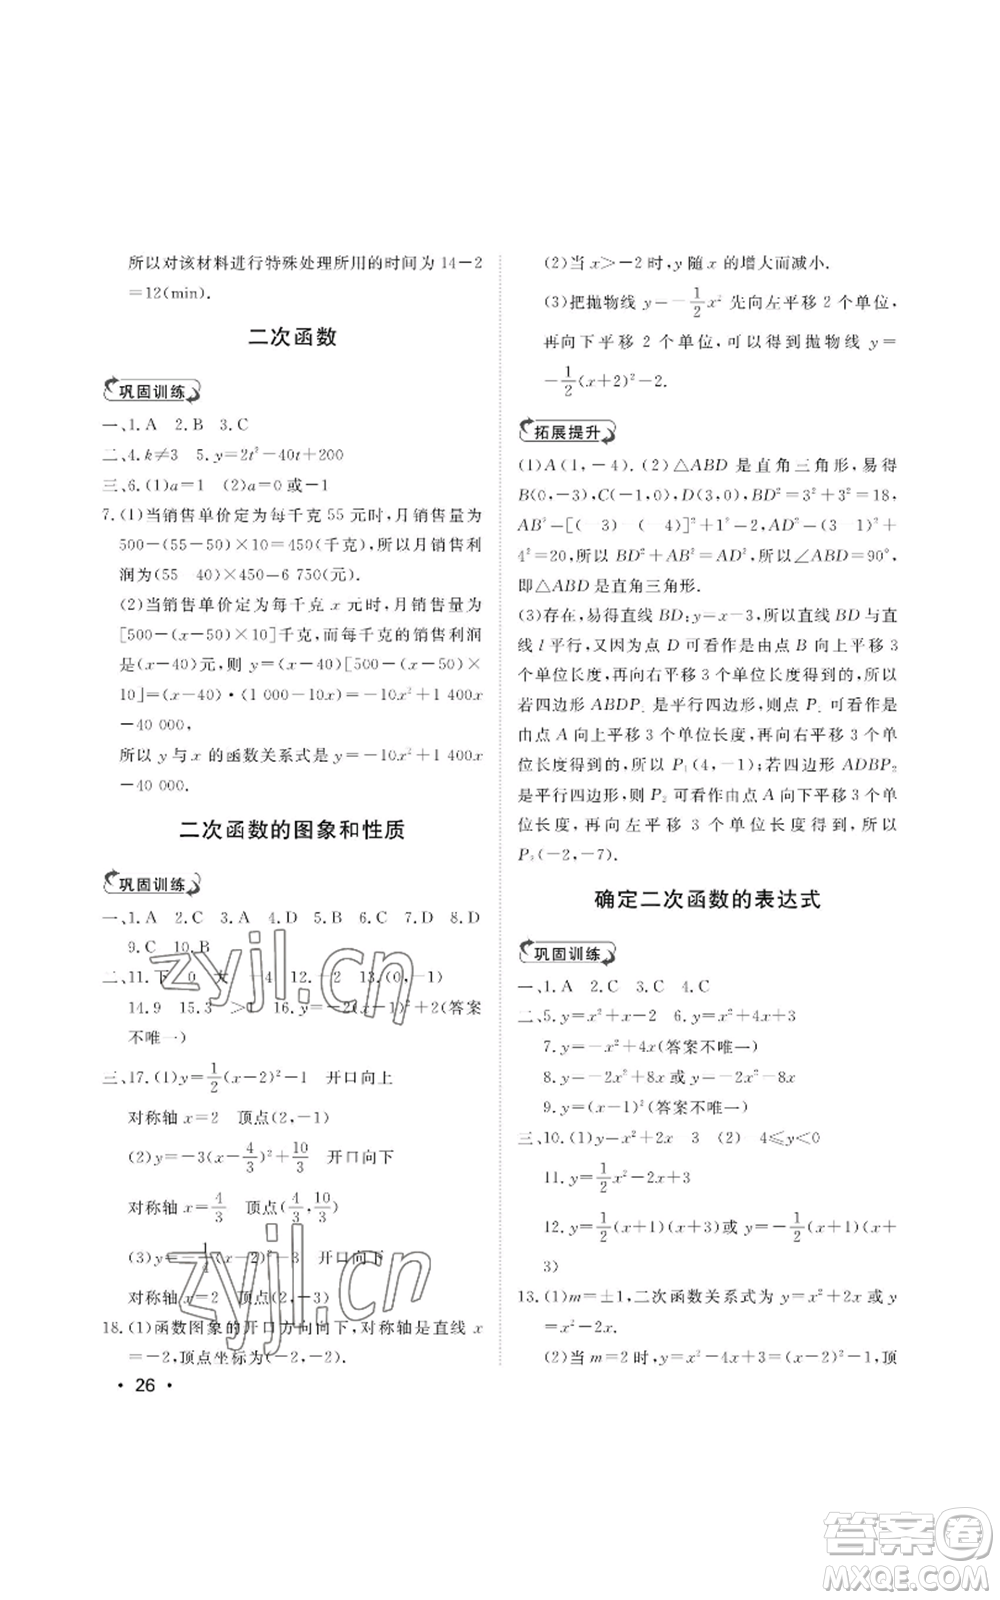 所以对该材料进行特殊处理所用的时间为 14－2
＝12(min).
二次函数
巩固训练
一、1. A 2. B 3. C
二、4. k≠3 5. y＝2t²－40t＋200
三、6. (1)a＝1 (2)a＝0 或－1
7. (1)当销售单价定为每千克 55 元时,月销售量为
500－(55－50)×10＝450(千克),所以月销售利
润为(55 40)×450－6 750(元).
(2)当销售单价定为每千克 x 元时,月销售量为
[500－(x－50)×10]千克,而每千克的销售利润
是(x－40)元,则 y＝(x－40)[500－(x－50)×
10]＝(x－40)·(1 000－10x)＝－10x²＋1 400x
－40 000,
所以 y 与 x 的函数关系式是 y＝－10x²＋1 400x
－40 000.
二次函数的图象和性质
巩固训练
一、1. A 2. C 3. A 4. D 5. B 6. C 7. D 8. D
9. C 10. B
二、11. 下 0 大 －4 12. －2 13. (0,－1)
14. 9 15. 3 >1 16. y＝－2(x－1)²＋2(答案
不唯一)
三、17. (1)y＝1/2(x－2)²－1 开口向上
对称轴 x＝2 顶点(2,－1)
(2)y＝－3(x－4/3)²＋10/3 开口向下
对称轴 x＝4/3 顶点(4/3,10/3)
(3)y＝－1/4(x－2)²－3 开口向下
对称轴 x＝2 顶点(2,－3)
18. (1)函数图象的开口方向向下,对称轴是直线 x
＝－2,顶点坐标为(－2,－2).
· 26 ·
(2)当 x>－2 时,y 随 x 的增大而减小.
(3)把抛物线 y－－1/2x² 先向左平移 2 个单位,
再向下平移 2 个单位,可以得到抛物线 y＝
－1/2(x＋2)²－2.
拓展提升
(1)A(1,－4). (2)△ABD 是直角三角形,易得
B(0,－3),C(－1,0),D(3,0),BD²＝3²＋3²＝18,
AB²－[(－3)－(－4)]²＋1²－2,AD²－(3－1)²＋
4²＝20,所以 BD²＋AB²＝AD²,所以∠ABD＝90°,
即△ABD 是直角三角形.
(3)存在,易得直线 BD:y＝x－3,所以直线 BD 与直
线 l 平行,又因为点 D 可看作是由点 B 向上平移 3
个单位长度,再向右平移 3 个单位长度得到的,所以
若四边形 ABDP₁ 是平行四边形,则点 P₁ 可看作是
由点 A 向上平移 3 个单位长度,再向右平移 3 个单位
长度得到的,所以 P₁(4,－1);若四边形 ADBP₂
是平行四边形,则 P₂ 可看作由点 A 向下平移 3 个单
位长度,再向左平移 3 个单位长度得到,所以
P₂(－2,－7).
确定二次函数的表达式
巩固训练
一、1. A 2. C 3. C 4. C
二、5. y＝x²＋x－2 6. y＝x²＋4x＋3
7. y＝－x²＋4x(答案不唯一)
8. y＝－2x²＋8x 或 y＝－2x²－8x
9. y＝(x－1)²(答案不唯一)
三、10. (1)y－x²＋2x 3 (2) 4≤y<0
11. y＝1/2x²－2x＋3
12. y＝1/2(x＋1)(x＋3)或 y＝－1/2(x＋1)(x＋
3)
13. (1)m＝±1,二次函数关系式为 y＝x²＋2x 或 y
＝x²－2x.
(2)当 m＝2 时,y＝x²－4x＋3＝(x－2)²－1,顶
zyjl.cn
zyjl.cn
答案圈
MXQE.COM